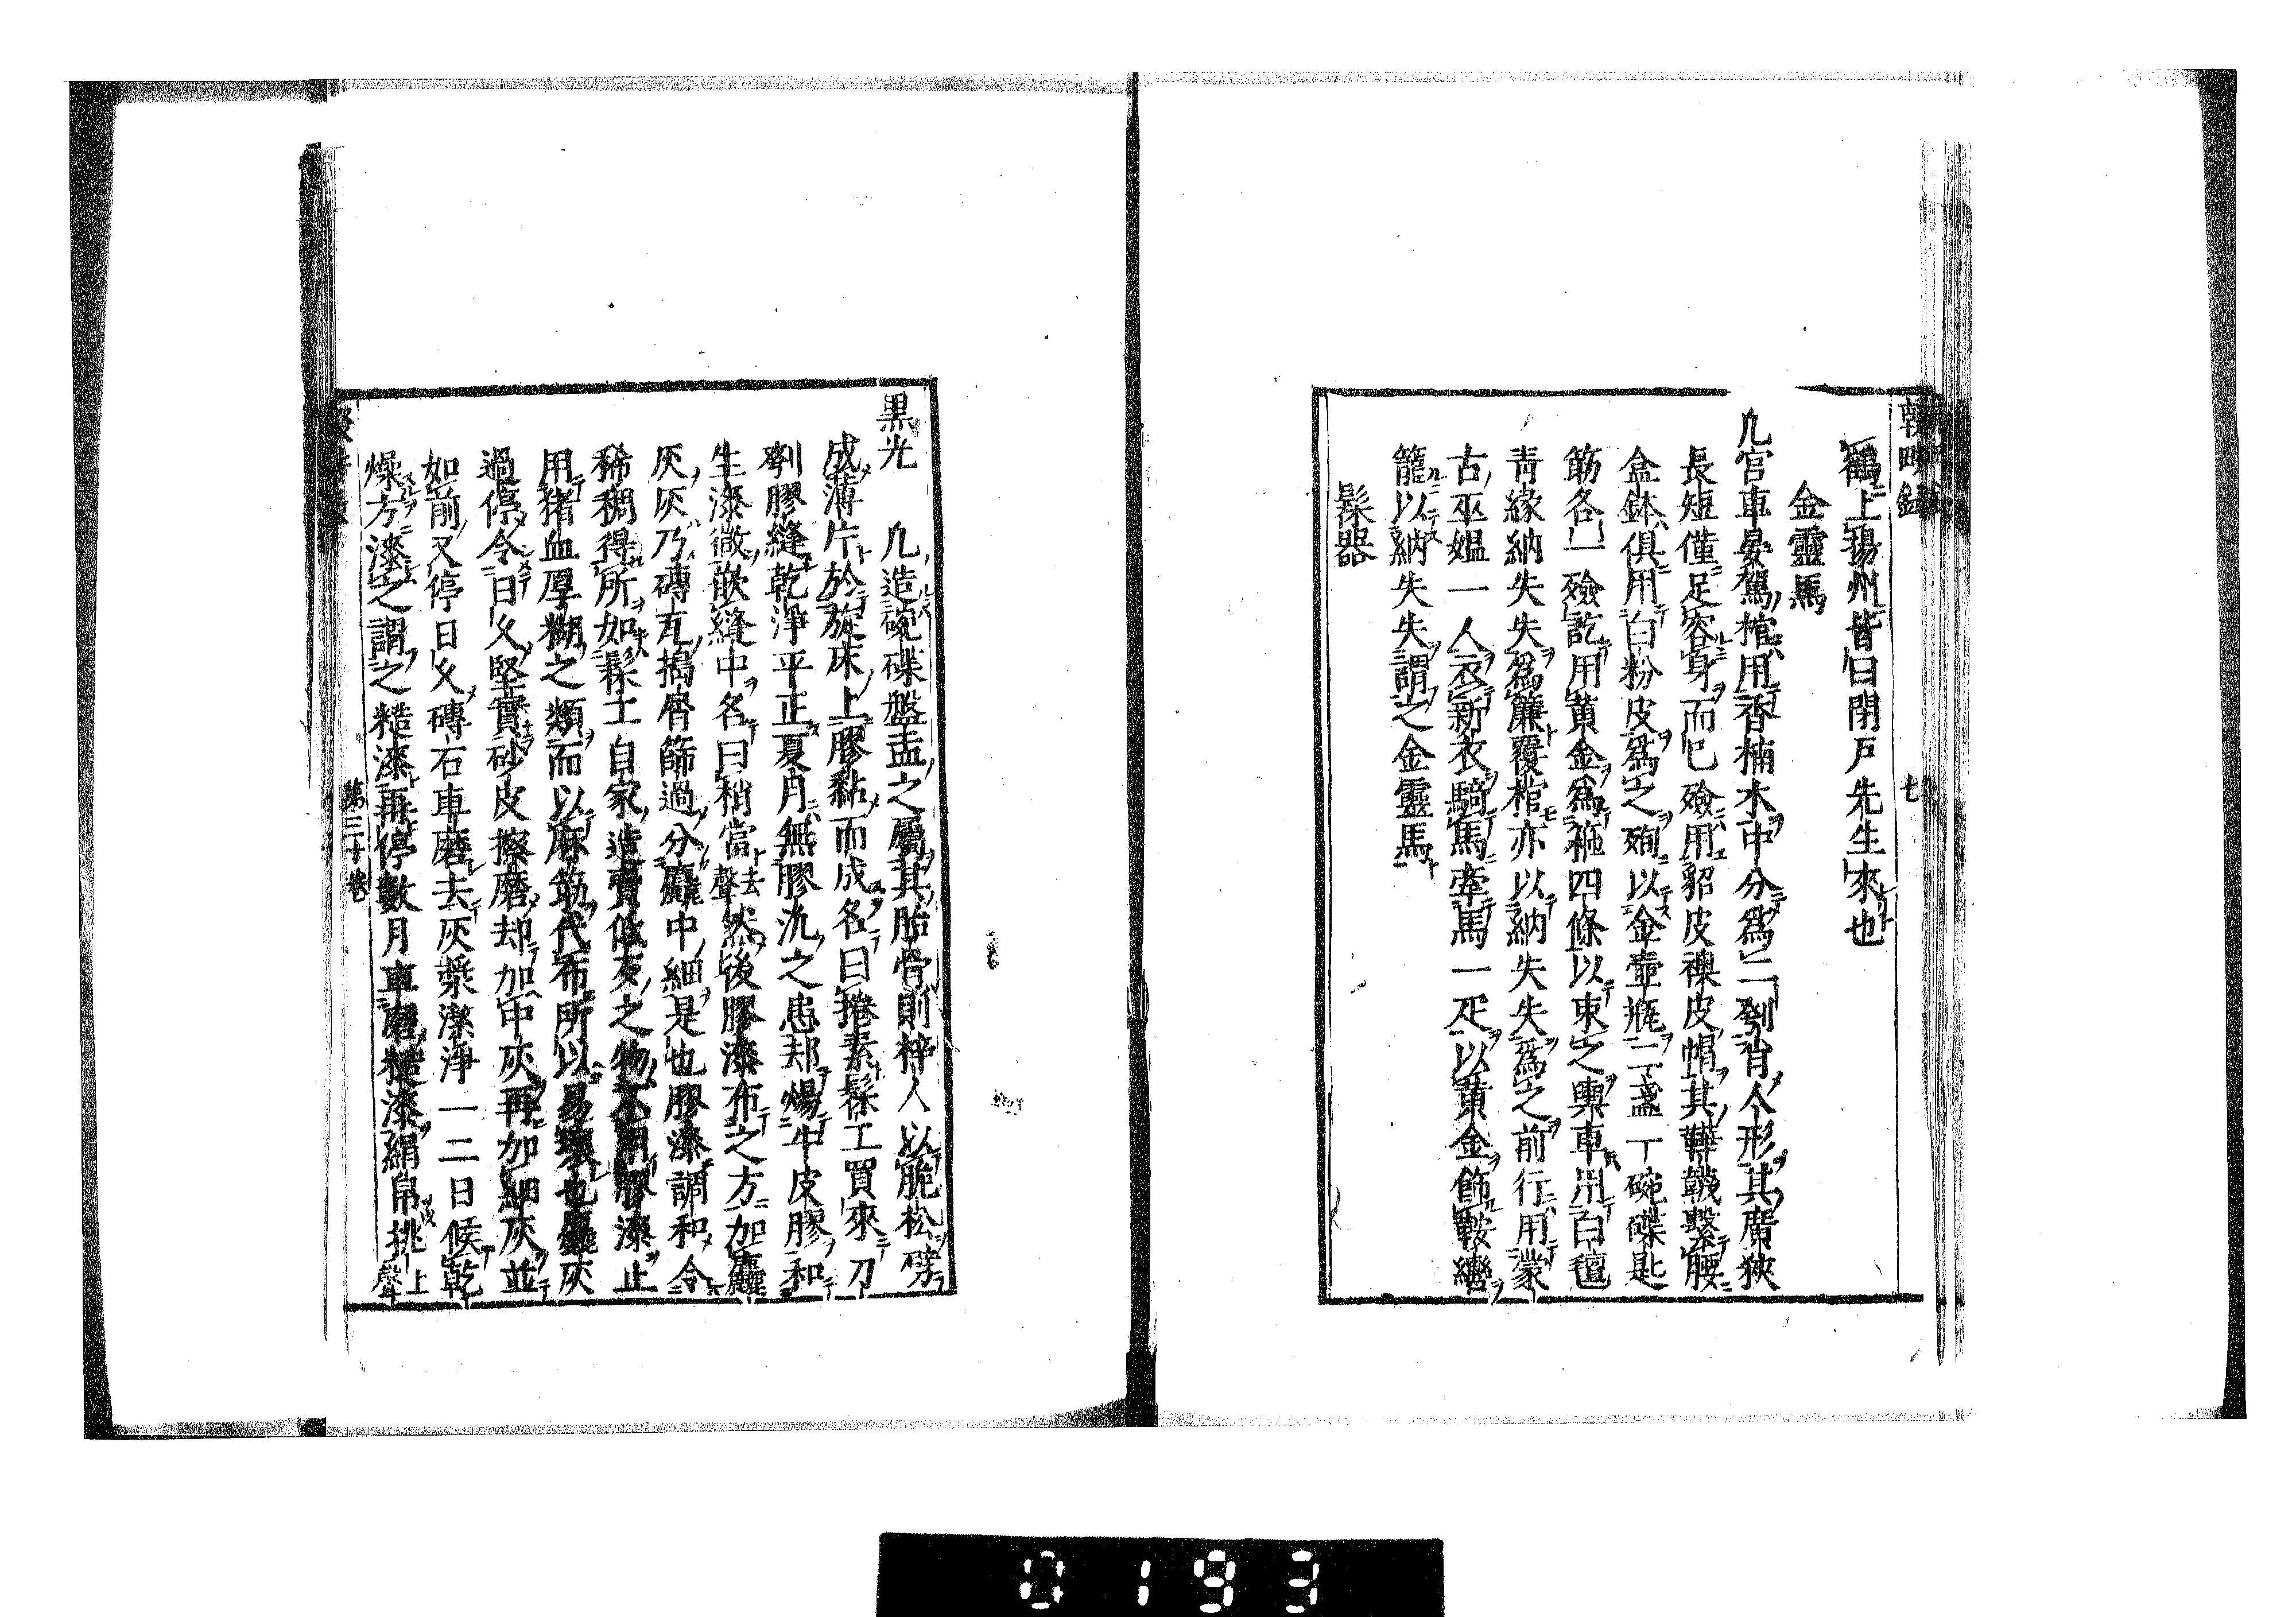 輟畊錄
七
鶴上揚州皆曰閉戸先生來也
金靈馬
凢宮車晏駕棺用香楠木中分爲二刳肖人形其廣狹
長短僅足容身而已殮用貂皮襖皮帽其鞾韈繫腰
盒鉢俱用白粉皮爲之殉以金壺瓶二盞一碗碟匙
筯各一殮訖用黄金爲箍四條以束之輿車用白氊
靑緣納失失爲簾覆棺亦以納失失爲之前行用蒙
古巫媪一人衣新衣騎馬牽馬一疋以黄金飾鞍轡
籠以納失失謂之金靈馬
髹器
黒光
凢造碗碟盤盂之屬其胎骨則梓人以脆松劈
成薄片於旋床上膠黏而成名曰捲素髹工買來刀
刳膠縫乾淨平正夏月無膠氿之患却煬牛皮膠和
生漆微嵌縫中名曰稍當去聲然後膠漆布之方加麤
灰灰乃磚瓦搗屑篩過分麤中細是也膠漆調和令
稀稠得所如髹工自家造賣低歹之物不用膠漆止
用猪血厚糊之類而以麻筋代布所以易壞也麤灰
過停令日久堅實砂皮擦磨却加中灰再加細灰並
如前又停日久磚石車磨去灰漿潔淨一二日候乾
燥方漆之謂之糙漆再停數月車磨糙漆絹帛挑上聲
第三十卷